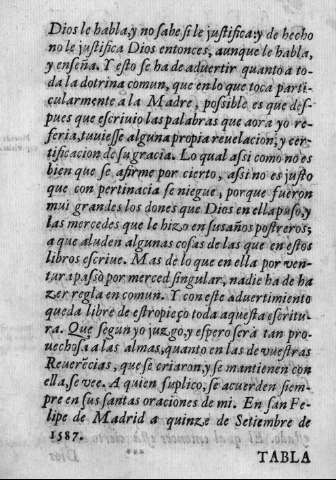 Dios le habla, y no sabe, si le justifica: y de hecho
no le justifica Dios entonces, aunque le habla,
y enseña. Y esto se ha de aduertir quanto a to-
da la dotrina comun, que en lo que toca parti-
cularmente a la Madre, possible es que des-
pues que escriuio las palabras que aora yo re-
feria, tuuiesse alguna propia reuelacion, y cer-
tificacion de su gracia. Lo qual assi como no es
bien que se afirme por cierto, assi no es justo
que con pertinacia se niegue, porque fueron
mui grandes los dones que Dios en ella puso, y
las mercedes que le hizo en sus años postreros;
a que aluden algunas cosas de las que en estos
libros escriue. Mas de lo que en ella por ven-
tura passò por merced singular, nadie ha de ha-
zer regla en comun. Y con este aduertimiento
queda libre de estropieço toda aquesta escritu-
ra. Que segun yo juzgo, y espero serà tan pro-
uechosa a las almas, quanto en las de vuestras
Reuerēcias, que se criaron, y se mantienen con
ella, se vee. A quien suplico, se acuerden siem-
pre en sus santas oraciones de mi. En san Fe-
lipe de Madrid a quinze de Setiembre de
1587.
TABLA